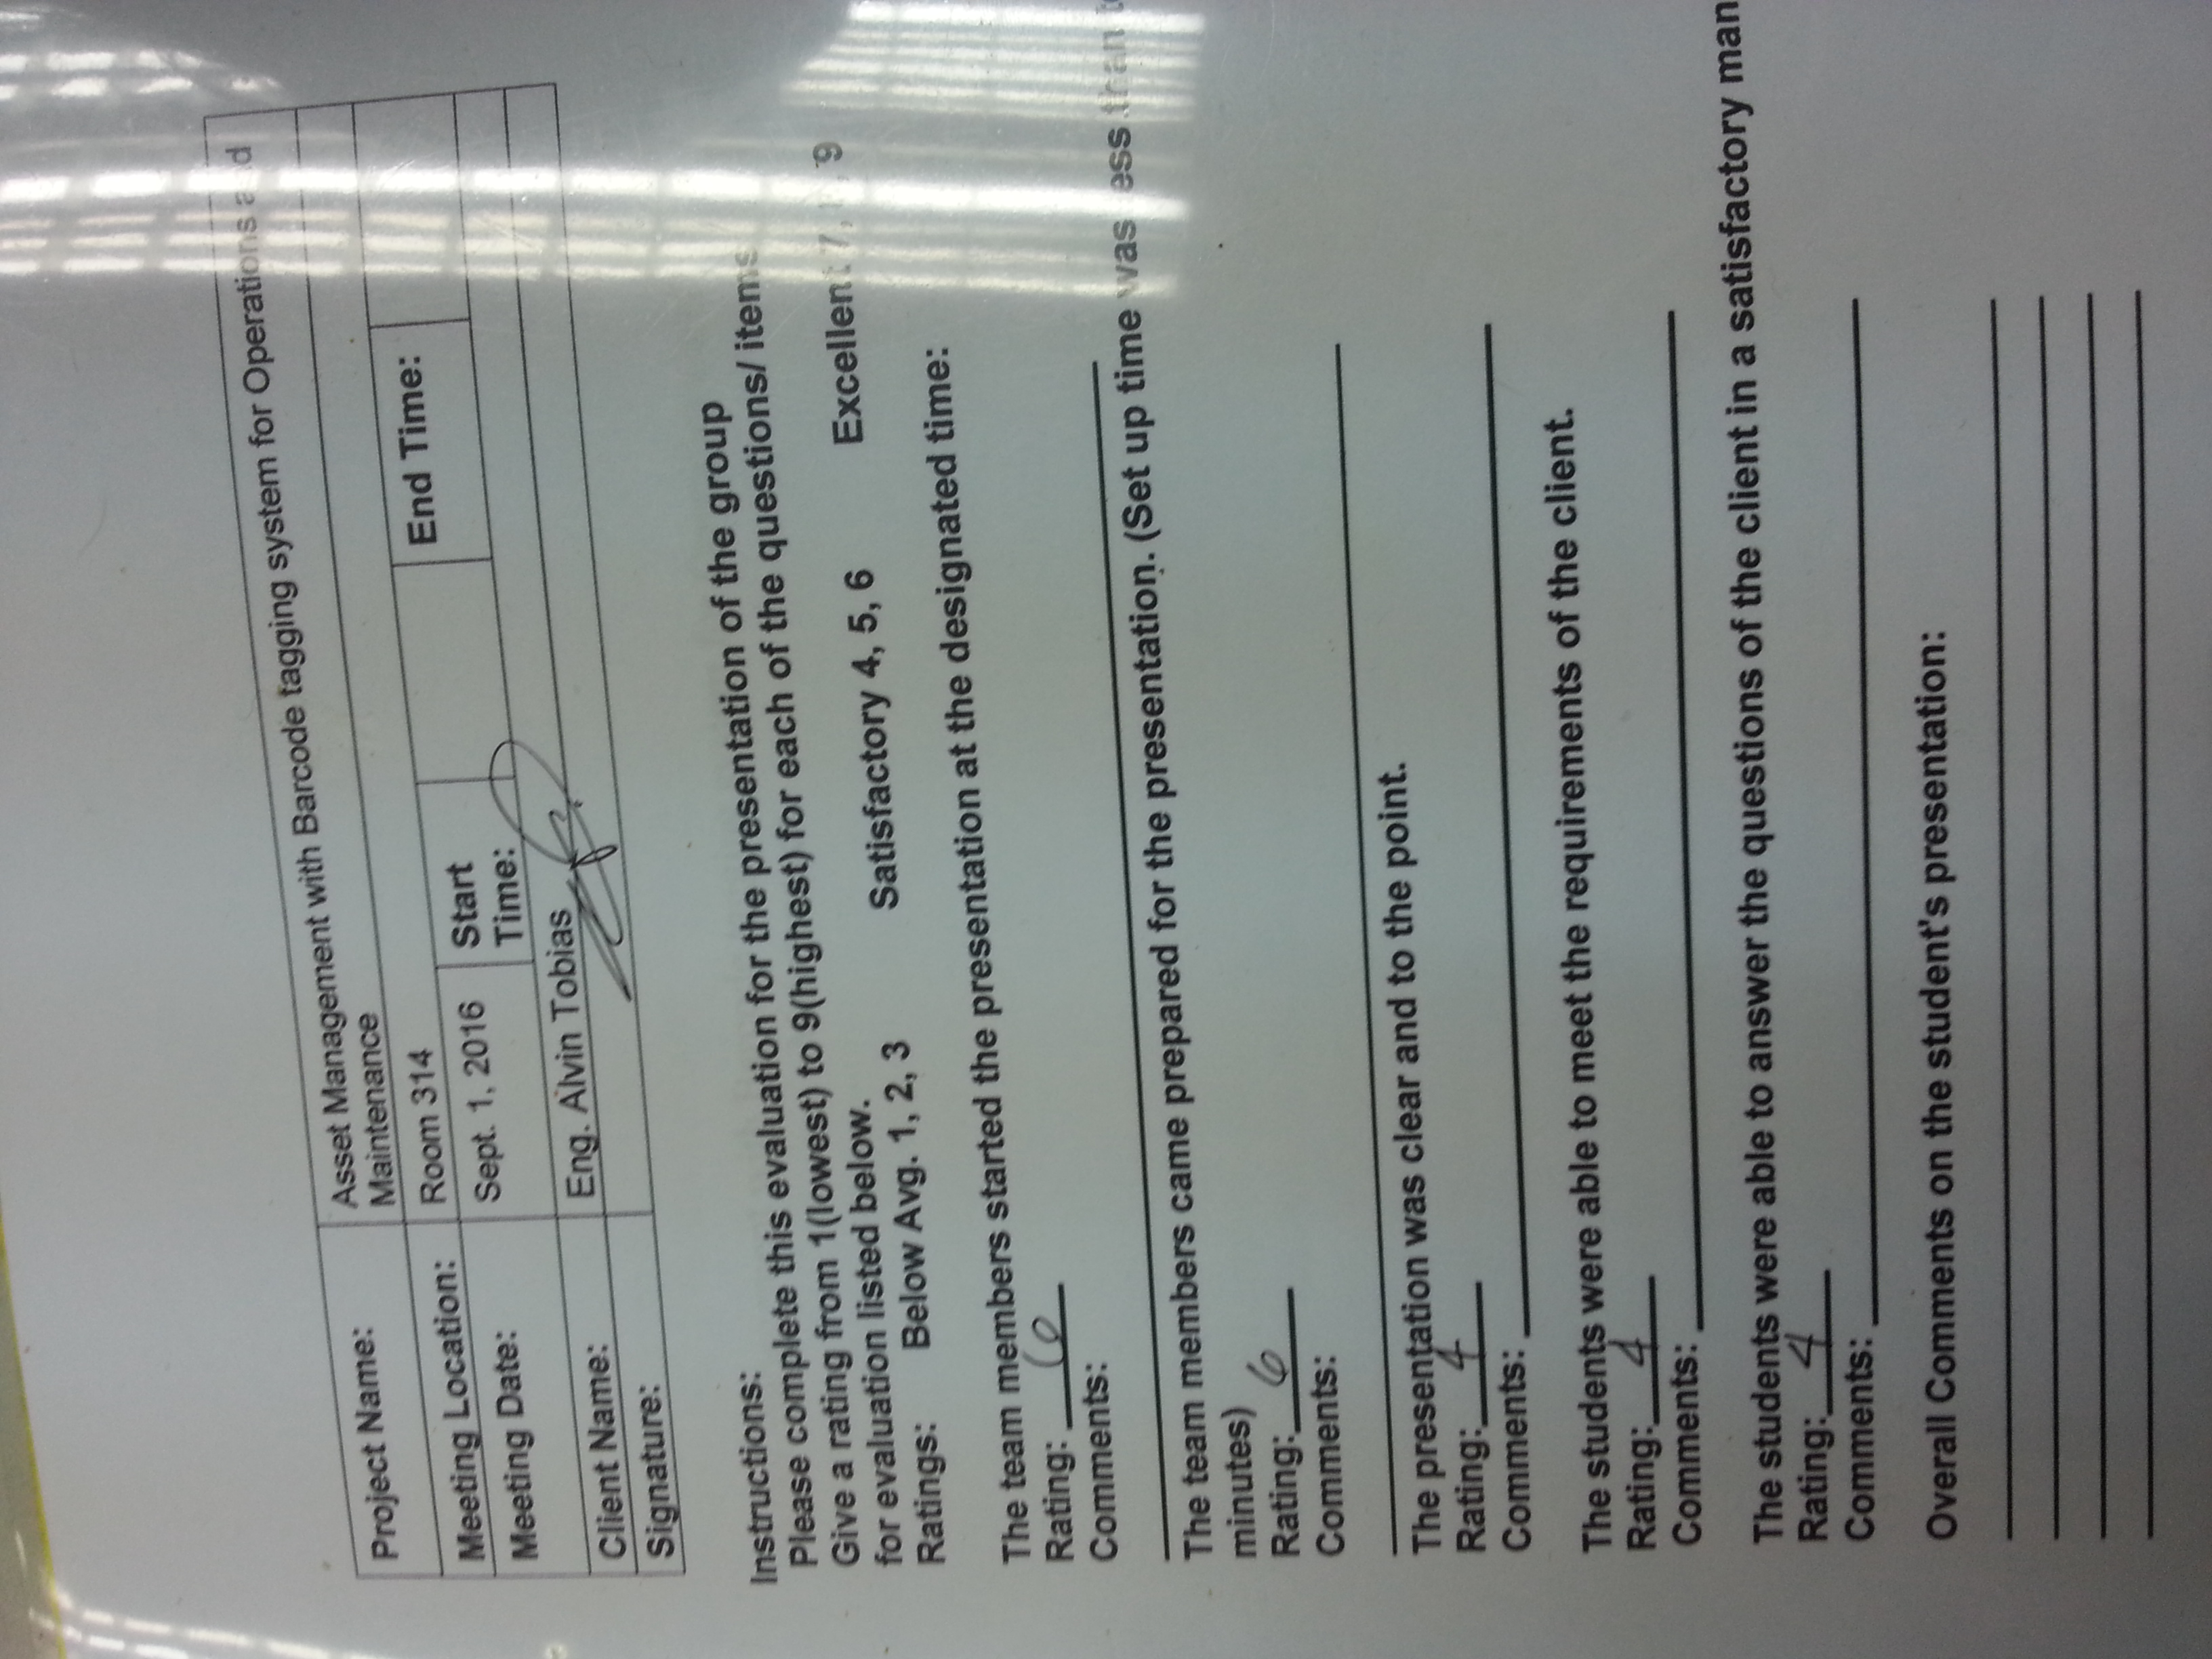 Project Name: Asset Management with Barcode tagging system for Operations and
Maintenance
Meeting Location: Room 314
Meeting Date: Sept. 1, 2016 Start Time: End Time:
Client Name: Eng. Alvin Tobias
Signature:
Instructions:
Please complete this evaluation for the presentation of the group
Give a rating from 1(lowest) to 9(highest) for each of the questions/ items
for evaluation listed below.
Ratings: Below Avg. 1, 2, 3 Satisfactory 4, 5, 6 Excellent 7, 8, 9
The team members started the presentation at the designated time:
Rating: 6
Comments:
The team members came prepared for the presentation. (Set up time was less than
minutes)
Rating: 6
Comments:
The presentation was clear and to the point.
Rating: 4
Comments:
The students were able to meet the requirements of the client.
Rating: 4
Comments:
The students were able to answer the questions of the client in a satisfactory man
Rating: 4
Comments:
Overall Comments on the student's presentation: